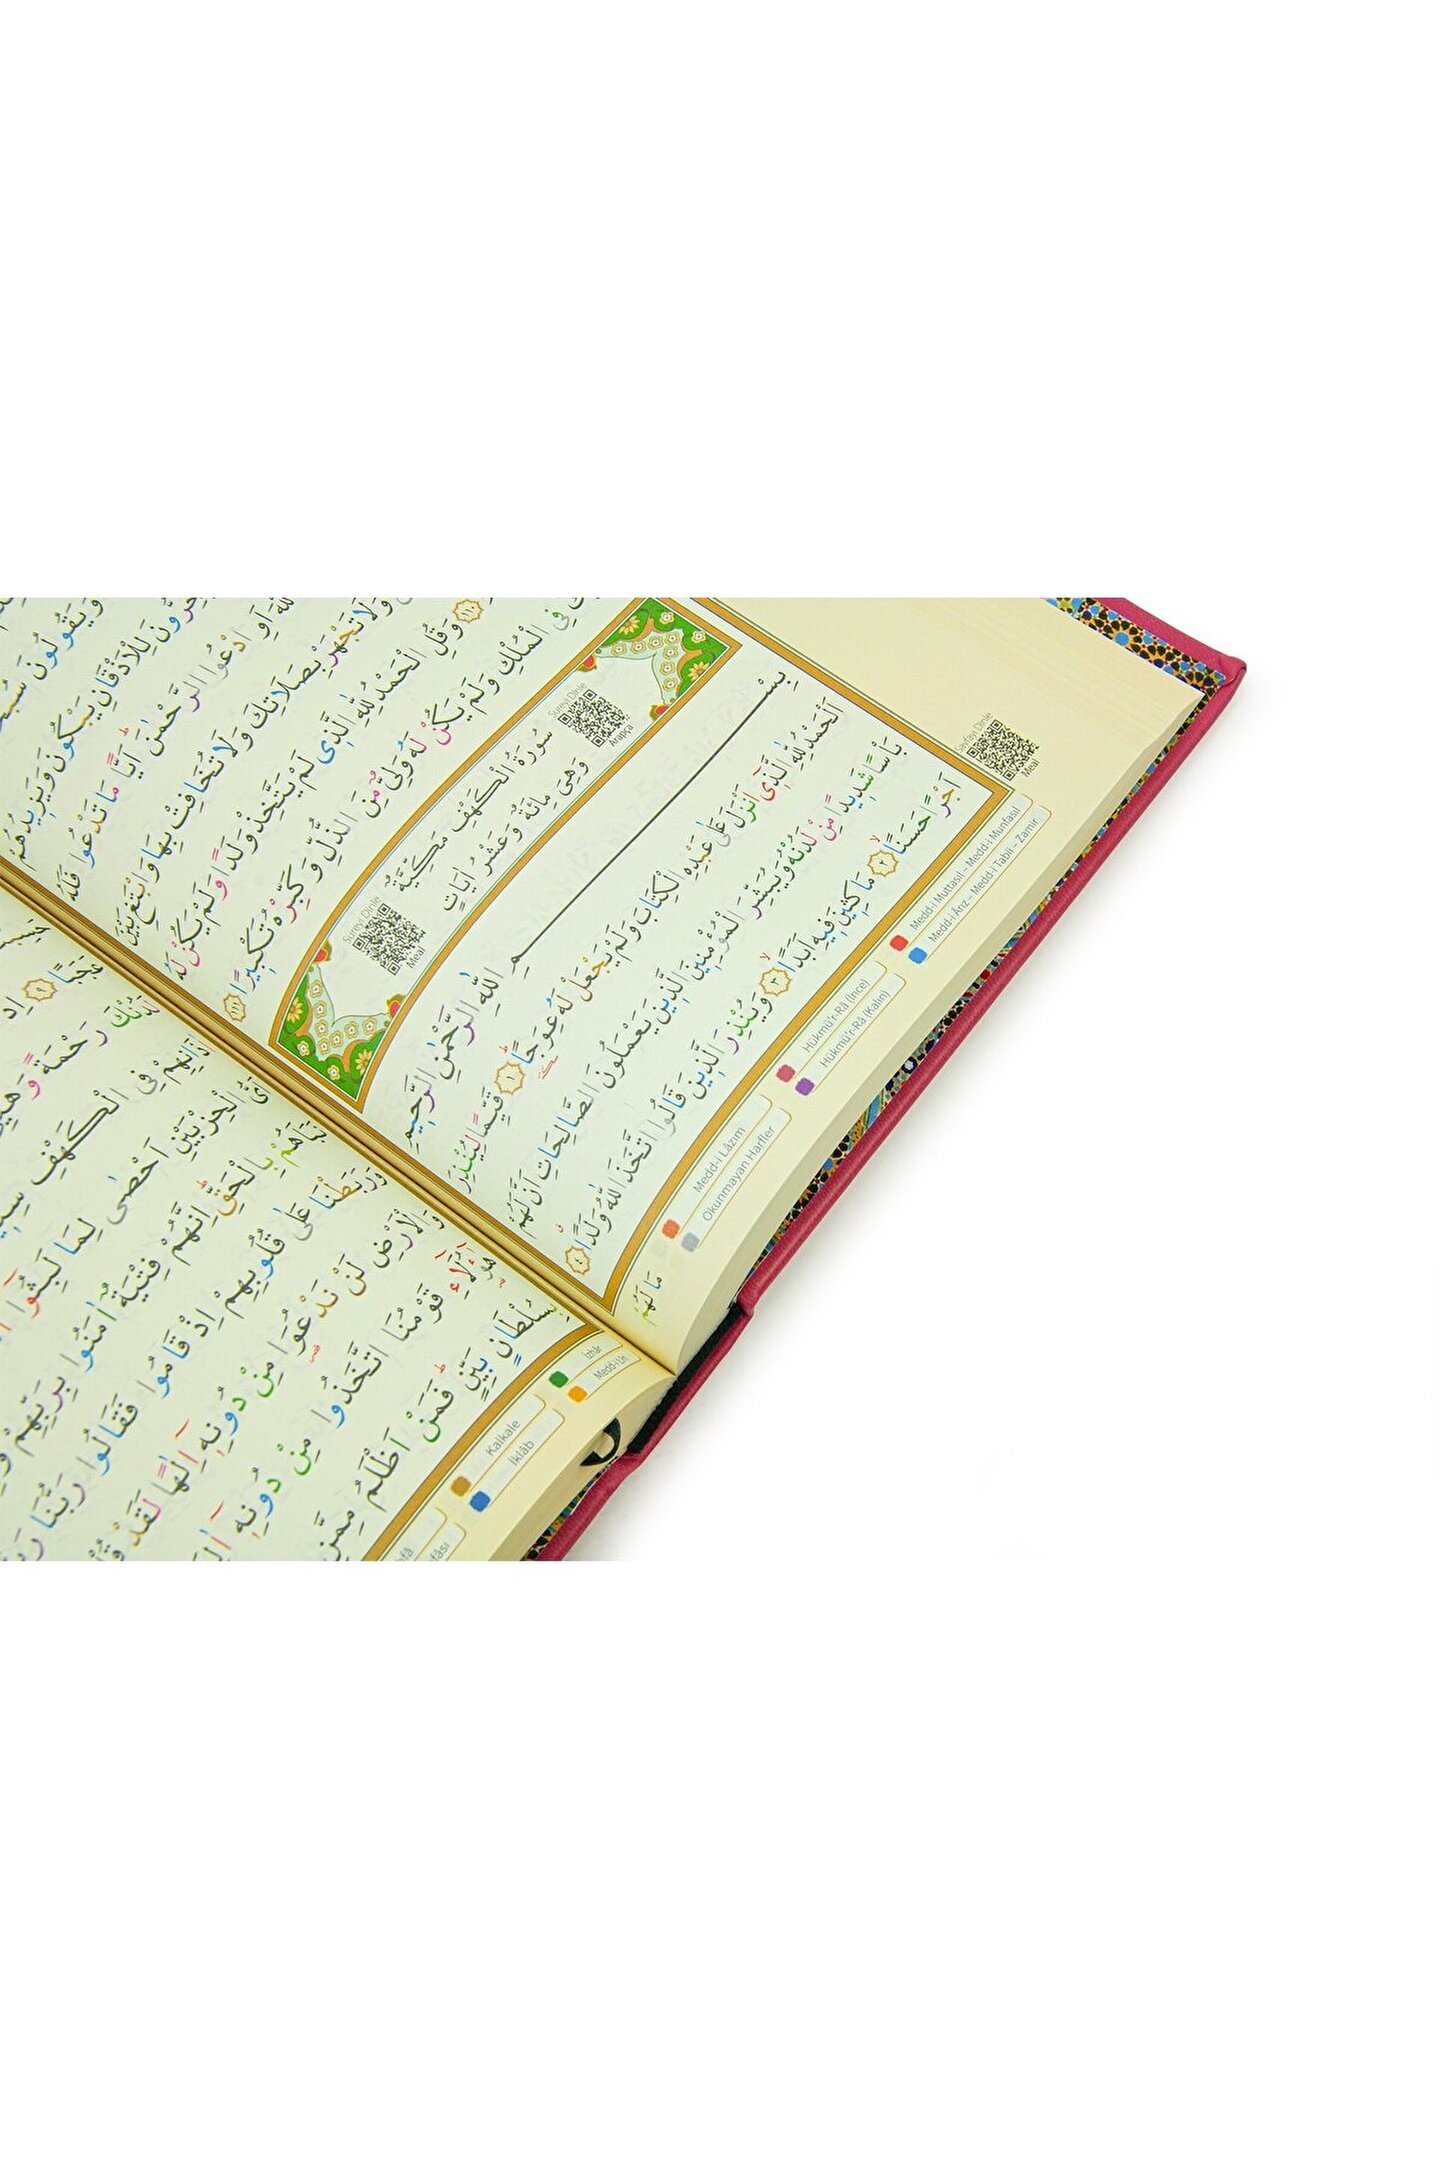 وَيَقُولُونَ
لِلْاَذْقَانِ يَبْكُونَ وَيَزِيدُهُمْ
اَوِ ادْعُوا الرَّحْمٰنَ اَيًّا مَا تَدْعُوا فَلَهُ
وَلَا تَجْهَرْ بِصَلَاتِكَ وَلَا تُخَافِتْ بِهَا وَابْتَغِ بَيْنَ
١١٠ وَقُلِ الْحَمْدُ لِلّٰهِ الَّذٖى لَمْ يَتَّخِذْ وَلَدًا وَلَمْ يَكُنْ لَهُ
فِى الْمُلْكِ وَلَمْ يَكُنْ لَهُ وَلِىٌّ مِنَ الذُّلِّ وَكَبِّرْهُ تَكْبٖيرًا ١١١
Sureyi Dinle
Arapça
سُورَةُ الْكَهْفِ مَكِّيَّةٌ
وَهِىَ مِائَةٌ وَعَشْرُ اٰيَاتٍ
Sureyi Dinle
Meal
بِسْمِ اللّٰهِ الرَّحْمٰنِ الرَّحٖيمِ
اَلْحَمْدُ لِلّٰهِ الَّذٖى اَنْزَلَ عَلٰى عَبْدِهِ الْكِتَابَ وَلَمْ يَجْعَلْ لَهُ عِوَجًا ١ قَيِّمًا لِيُنْذِرَ
بَأْسًا شَدٖيدًا مِنْ لَدُنْهُ وَيُبَشِّرَ الْمُؤْمِنٖينَ الَّذٖينَ يَعْمَلُونَ الصَّالِحَاتِ اَنَّ لَهُمْ
اَجْرًا حَسَنًا ٢ مَاكِثٖينَ فٖيهِ اَبَدًا ٣ وَيُنْذِرَ الَّذٖينَ قَالُوا اتَّخَذَ اللّٰهُ وَلَدًا ٤
مَا لَهُمْ
Sayfayı Dinle
Meal
Medd-i Muttasıl – Medd-i Munfasıl
Medd-i Ârız – Medd-i Tabii – Zamir
Hükmü'r-Râ (İnce)
Hükmü'r-Râ (Kalın)
Medd-i Lâzım
Okunmayan Harfler
عَجَبًا ٩ اِذْ
رَحْمَةً
فِى الْكَهْفِ
الْحِزْبَيْنِ اَحْصٰى لِمَا لَبِثُوا
بِالْحَقِّ اِنَّهُمْ فِتْيَةٌ اٰمَنُوا بِرَبِّهِمْ
وَرَبَطْنَا عَلٰى قُلُوبِهِمْ اِذْ قَامُوا فَقَالُوا رَبُّنَا
وَالْاَرْضِ لَنْ نَدْعُوَا مِنْ دُونِهٖ اِلٰهًا لَقَدْ
هٰؤُلَاءِ قَوْمُنَا اتَّخَذُوا مِنْ دُونِهٖ
بِسُلْطَانٍ بَيِّنٍ فَمَنْ اَظْلَمُ مِمَّنِ
İzhâr
Medd-i Lîn
Kalkale
İklâb